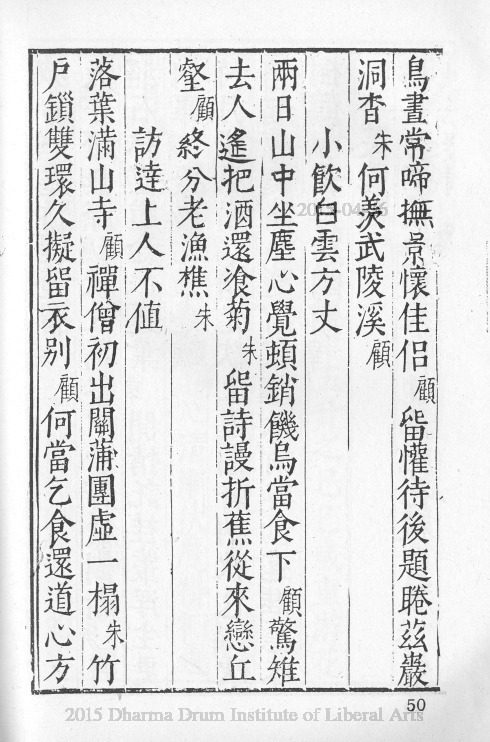 鳥晝常啼撫景懷佳侶顧留懽待後題睠茲巖
洞杳朱何羨武陵溪顧
小飲白雲方丈
兩日山中坐塵心覺頓銷饑烏當食下顧驚雉
去人遙把酒還飡菊朱留詩謾折蕉從來戀丘
壑顧終分老漁樵朱
訪達上人不值
落葉滿山寺顧禪僧初出關蒲團虛一榻朱竹
戶鎖雙環久擬留衣別顧何當乞食還道心方
50
2015 Dharma Drum Institute of Liberal Arts